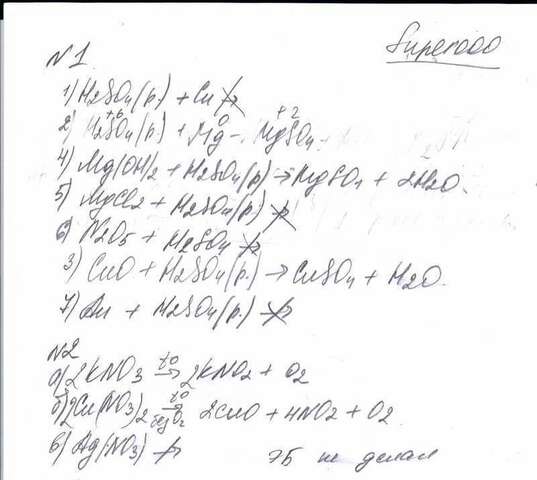 Super000
N1
1) H2SO4(р.) + Cu ↛
2) H2SO4(р) + Mg - MgSO4
+6 0 +2
4) Mg(OH)2 + H2SO4(р) → MgSO4 + 2H2O
5) MgCl2 + H2SO4(р) ↛
6) N2O5 + H2SO4 ↛
3) CuO + H2SO4(р.) → CuSO4 + H2O.
7) Au + H2SO4(р.) ↛
N2
а) 2KNO3 t0→ 2KNO2 + O2
б) 2Cu(NO3)2 t0→ без O2 2CuO + 4NO2 + O2
в) Ag(NO3) ↛
ЭБ не делал